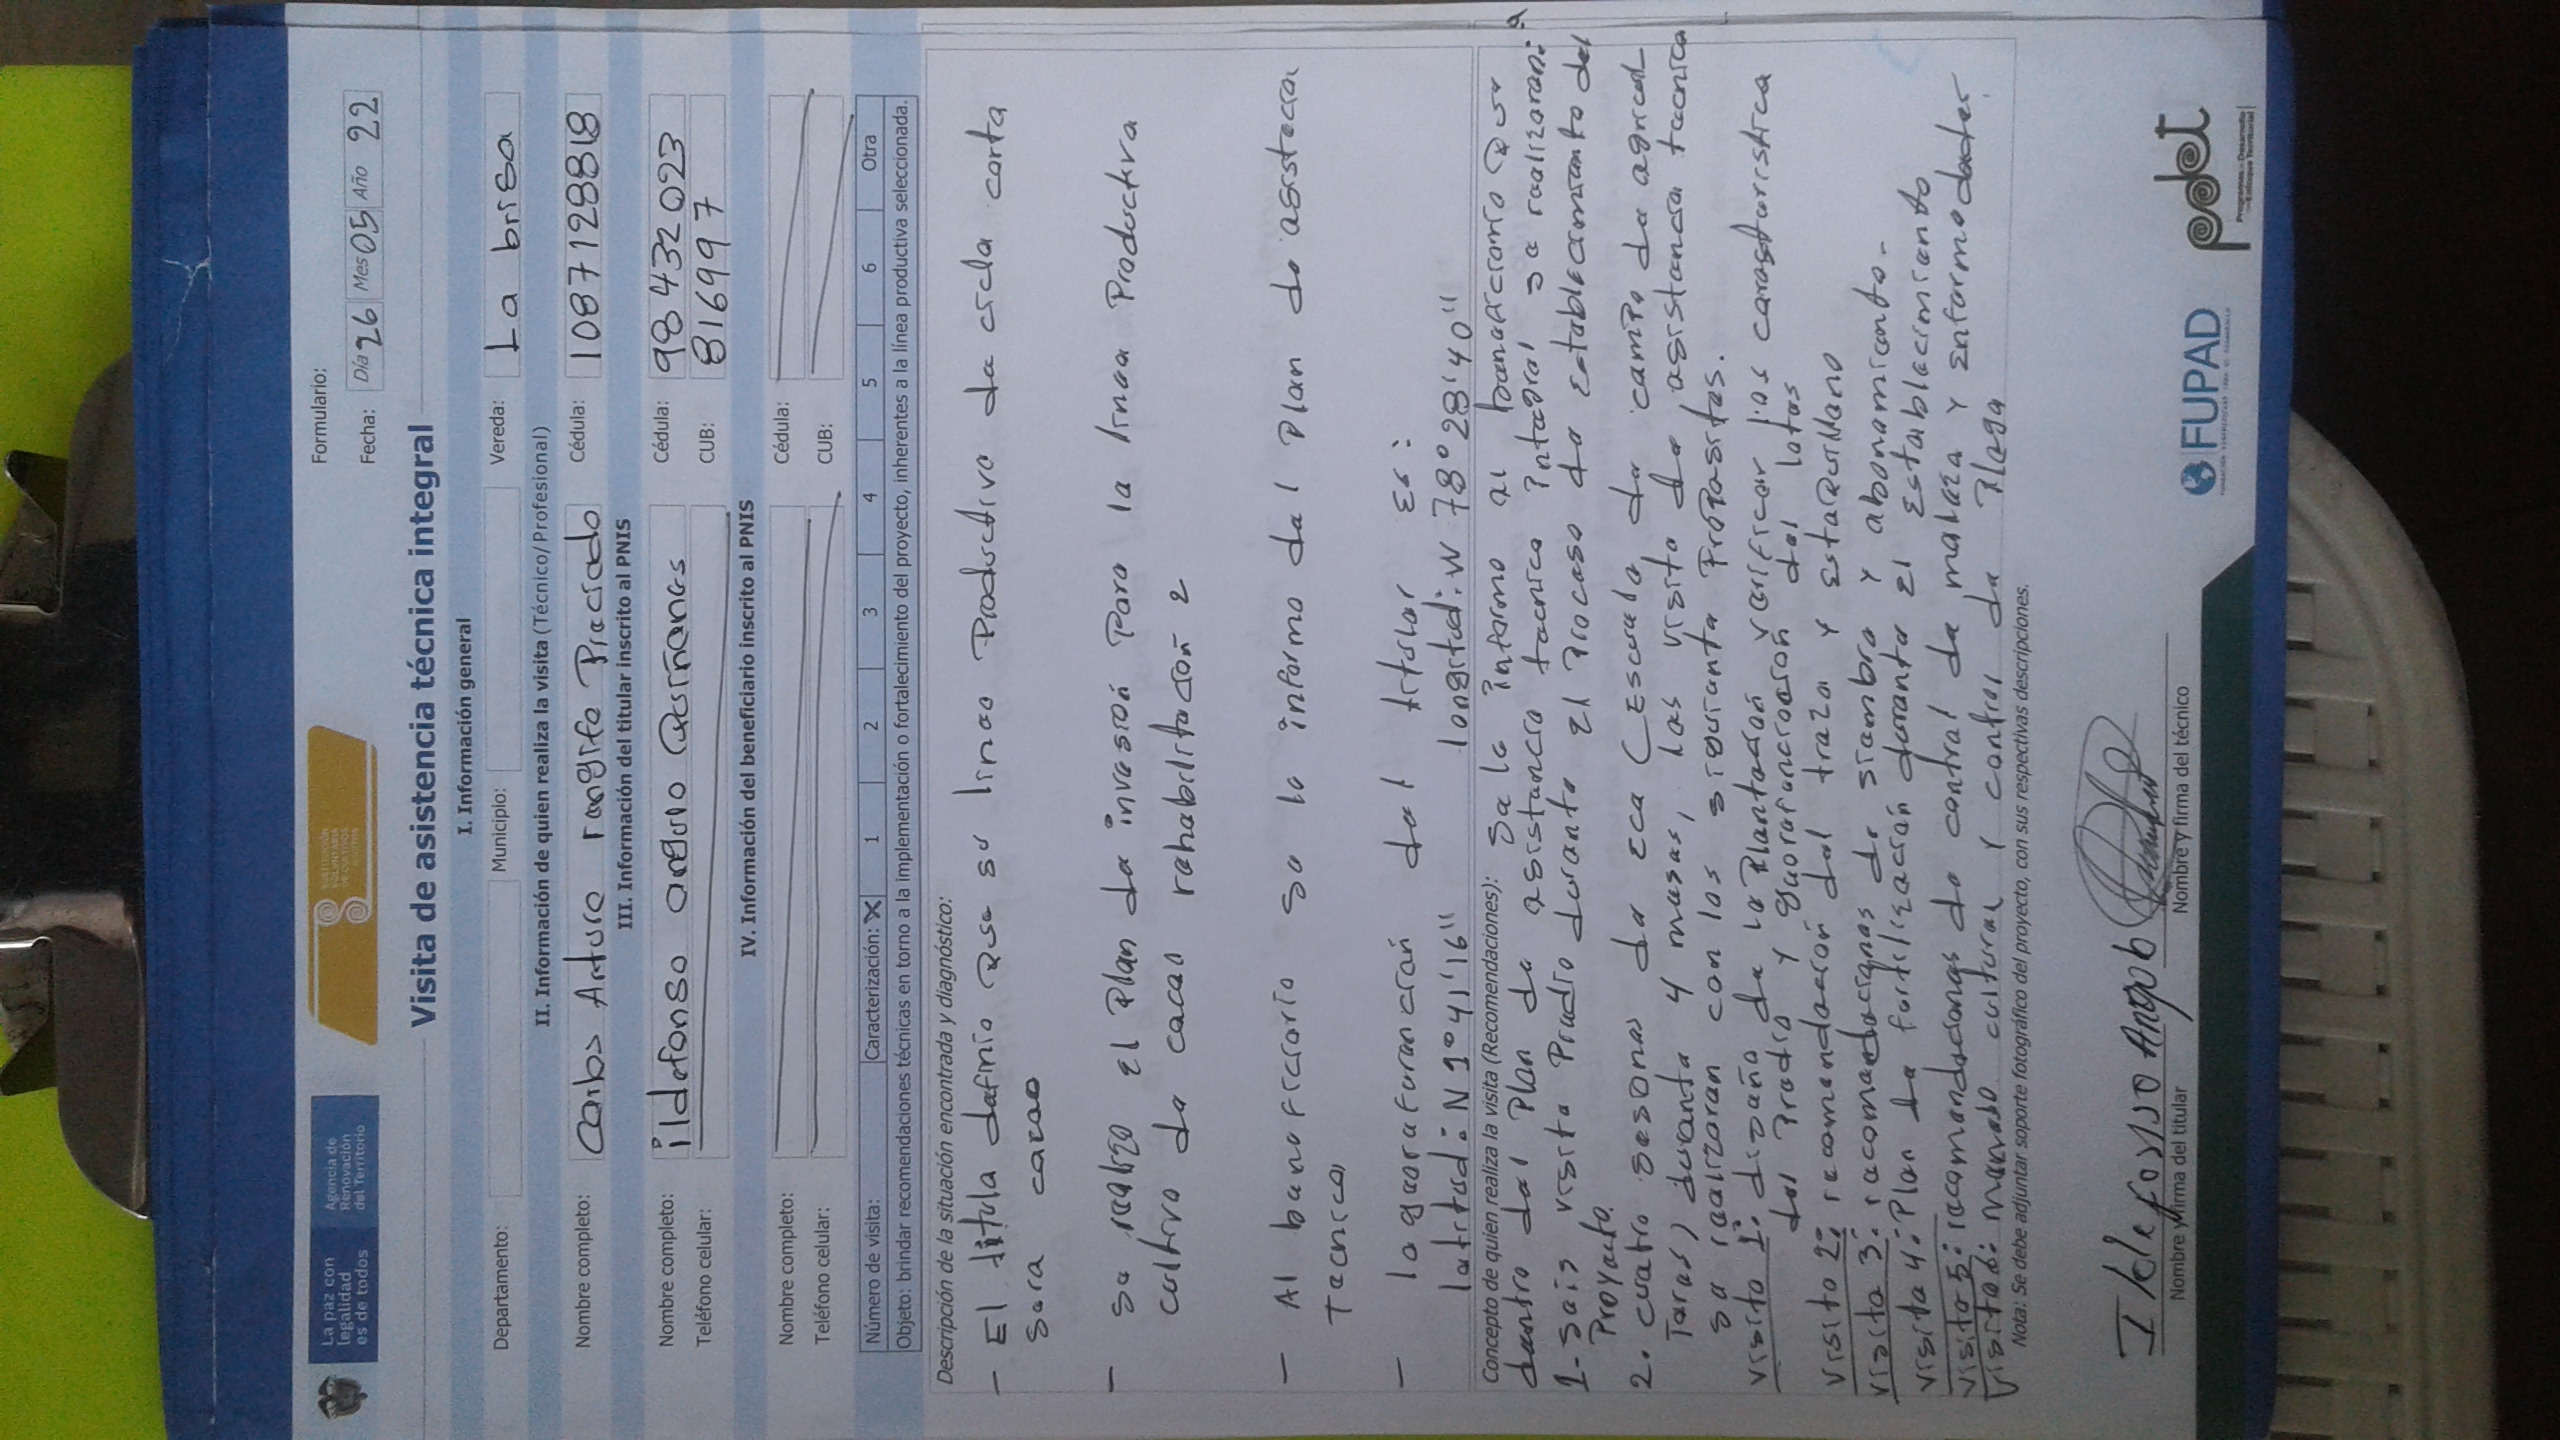 La paz con
legalidad
es de todos
Agencia de
Renovación
del Territorio
SUSTITUCIÓN
VOLUNTARIA
DE CULTIVOS
ILÍCITOS
Formulario:
Fecha: Día 26 Mes 05 Año 22
Visita de asistencia técnica integral
I. Información general
Departamento: Municipio: Vereda: La brisa
II. Información de quien realiza la visita (Técnico/Profesional)
Nombre completo: Carlos Arturo rengifo Preciado Cédula: 1087128818
III. Información del titular inscrito al PNIS
Nombre completo: ildefonso angulo Quiñones Cédula: 98432023
Teléfono celular: CUB: 816997
IV. Información del beneficiario inscrito al PNIS
Nombre completo: Cédula:
Teléfono celular: CUB:
Número de visita: Caracterización: X 1 2 3 4 5 6 Otra
Objeto: brindar recomendaciones técnicas en torno a la implementación o fortalecimiento del proyecto, inherentes a la línea productiva seleccionada.
Descripción de la situación encontrada y diagnóstico:
- El titula definio Que su linea Productiva de cicla corta
sera cacao
- se realizo El Plan de inversión Para la linea Productiva
cultivo de cacao rehabilitación 2
- Al beneficiario se le informo del Plan de asistecia
Tecnica
- la georeferenciación del titular Es:
latitud: N 1° 41' 16" longitud: W 78° 28' 40"
Concepto de quien realiza la visita (Recomendaciones): se le informo al beneficiario Que
dentro del Plan de asistencia tecnica integral se realizaran:
1- seis visita Predio durante El Proceso de Establecimiento del
Proyecto.
2. cuatro sesones de Eca (Escuela de campo de agricul
Tores) durante 4 meses, las visita de asistencia tecnica
se realizaran con los siguiente Propositos.
visita 1: diseño de la Plantación y verificar las caracteristica
del Predio y georefenciación del lotes
visita 2: recomendación del trazo y Estaquillado
visita 3: recomendaciones de siembra y abonamiento-
visita 4: Plan de fertilización durante El Establecimiento
visita 5: recomendaciones de control de maleza y Enfermedades
visita 6: manejo cultural y control de Plaga
Nota: Se debe adjuntar soporte fotográfico del proyecto, con sus respectivas descripciones.
Nombre y firma del titular
Nombre y firma del técnico
FUPAD
pdet
Programas de Desarrollo
con Enfoque Territorial